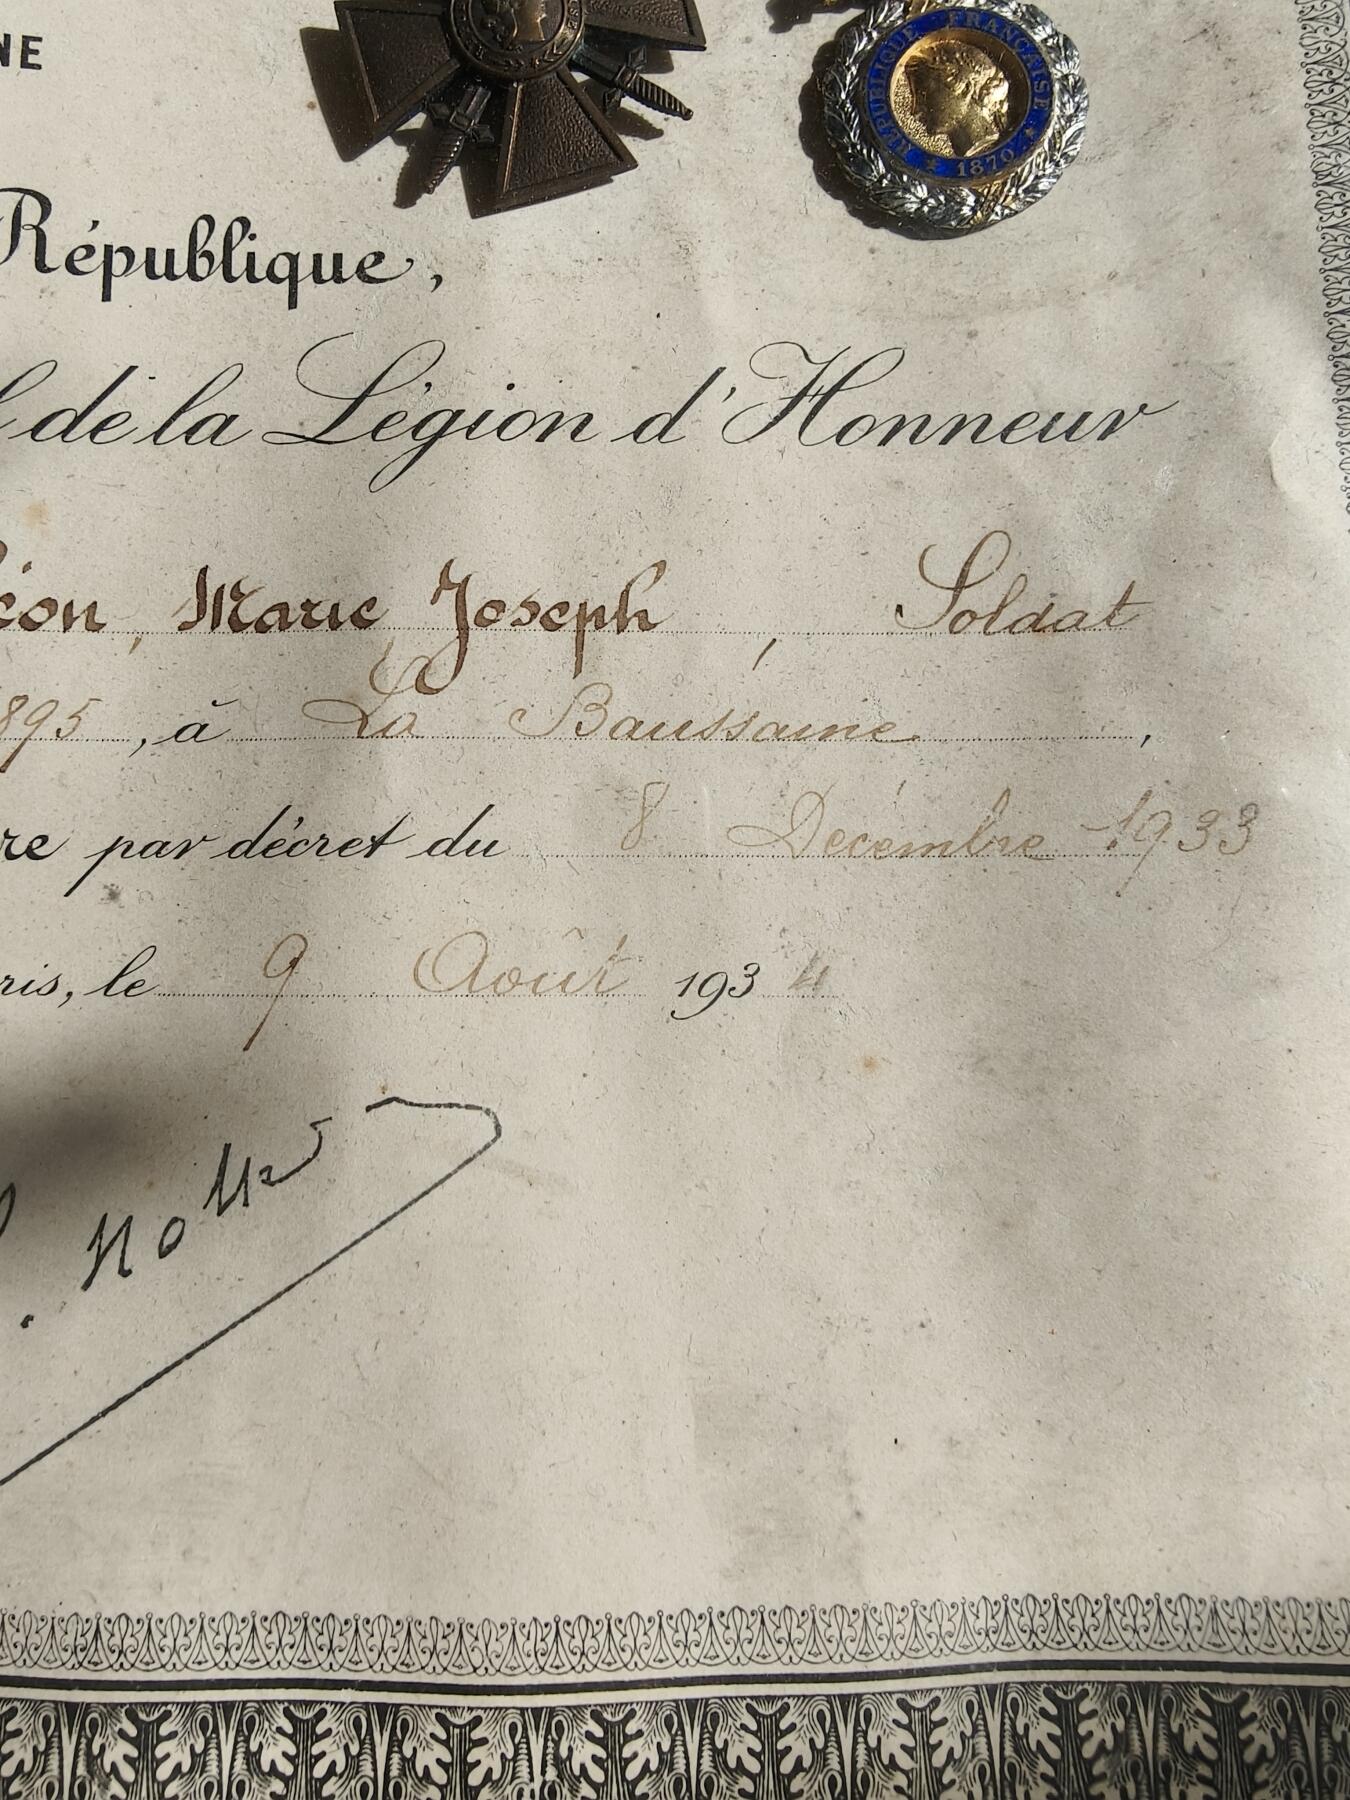 NE
RÉPUBLIQUE FRANÇAISE
1870
République,
l de la Légion d'Honneur
éon, Marie Joseph, Soldat
1895, à La Baussaine,
re par décret du 8 Décembre 1933
ris, le 9 Août 1934